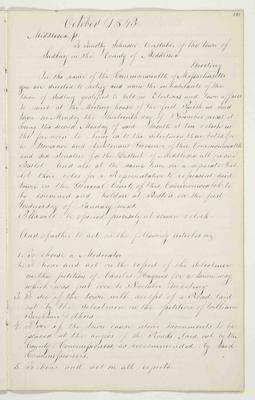 October 1843
Middlesex Ss.
To Timothy Constable of the town of
Sudbury in the County of Middlesex
Greeting
In the name of the Commonwealth of Massachusetts
you are directed to notify and warn the inhabitants of the
town of Sudbury qualified to vote in Elections and town affairs
to meet at the Meeting house of the first Parish in said
town on Monday the thirteenth day of November next it
being the second Monday of said month at
to bring in to the selectmen their votes for
a Governor and Lieutenant Governor of this Commonwealth
and Senators in the District of Middlesex all on one
Ballot. And also at the same time on a separate ballot
their votes for a Representative to represent said
town in the General Court of this Commonwealth to
be convened and holden at Boston on the first
Wednesday of January next
Polls will be opened precisely at o'clock
And further to act on the following articles viz
1. To choose a Moderator
2. To hear and act on the report of the Selectmen
on the petition of Charles Haynes for a town way
which was put over to November Meeting
3. To see if the town will accept of a Road laid
out by the Selectmen on the petition of William
and others
4. To see if the town cause stone monuments to be
placed at the angles of the Roads laid out by the
County Commissioners as recommended by said
Commissioners
5. To hear and act on all reports